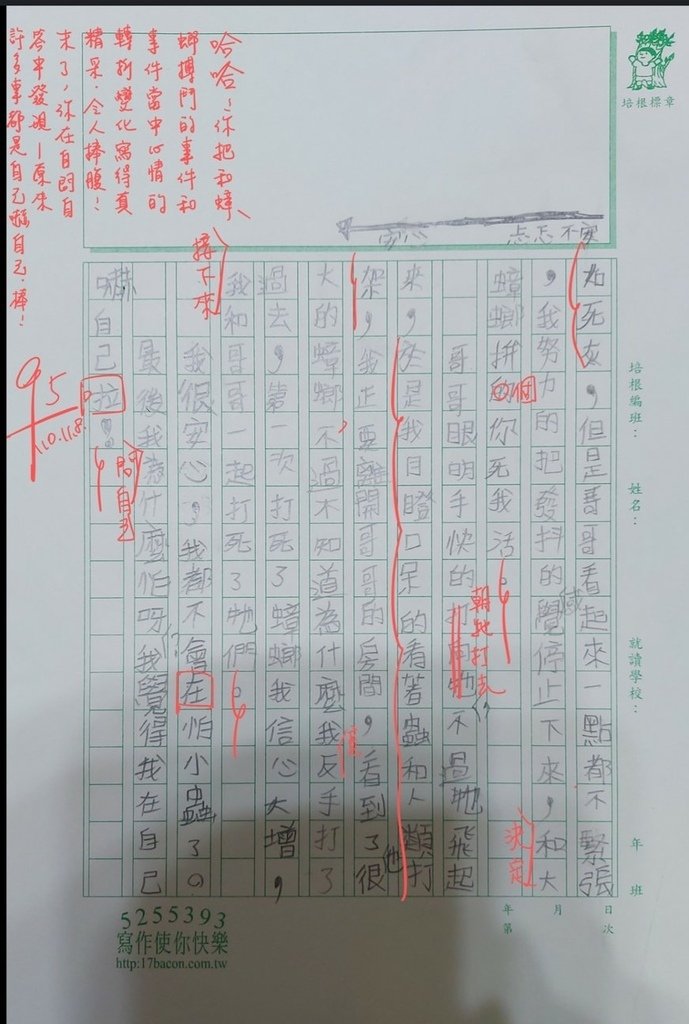 培根標章
安心
忐忑不安
培根編班：
姓名：
就讀學校：
年 班
年 月 日
第 次
如死灰，但是哥哥看起來一點都不緊張
，我努力的把發抖的感覺停止下來，和大
決定
蟑螂拼的你死我活。
個
哥哥眼明手快的打向牠不過牠飛起
朝牠打去
來，於是我目瞪口呆的看著蟲和人類打
架，我正要離開哥哥的房間，看到了很
大的蟑螂不過不知道為什麼我反手打了
他
過去，第一次打死了蟑螂我信心大增，
我和哥哥一起打死了牠們。
接下來
我很安心，我都不會在怕小蟲了。
最後我為什麼怕呀？我覺得我在自己
嚇自己拉！
問自己
哈哈！你把和蟑
螂搏鬥的事件和
事件當中心情的
轉折變化寫得真
精采，令人捧腹！
末了，你在自問自
答中發現—原來
許多事都是自己嚇自己，棒！
95
110.11.8.
5255393
寫作使你快樂
http:17bacon.com.tw